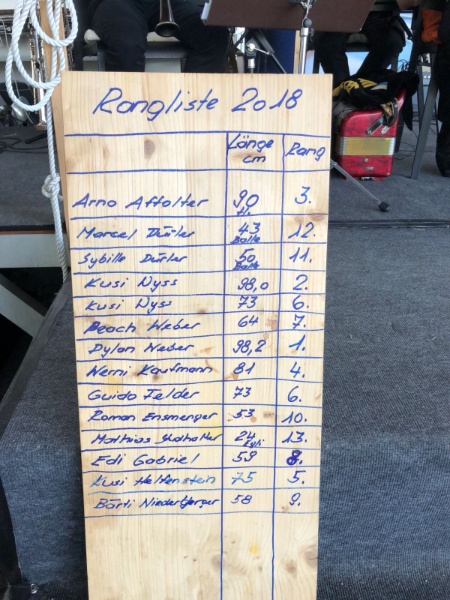 Rangliste 2018
Länge cm Rang
Arno Affolter 90 3.
Marcel Dürler 43 Balle 12.
Sybille Dürler 50 Balle 11.
Kusi Nyss 98,0 2.
Kusi Nyss 73 6.
Peach Weber 64 7.
Dylan Weber 98,2 1.
Werni Kaufmann 81 4.
Guido Felder 73 6.
Roman Ensmenger 53 10.
Mathias 24 13.
Edi Gabriel 59 8.
Kusi Heltenstein 75 5.
Bärti Niederberger 58 9.